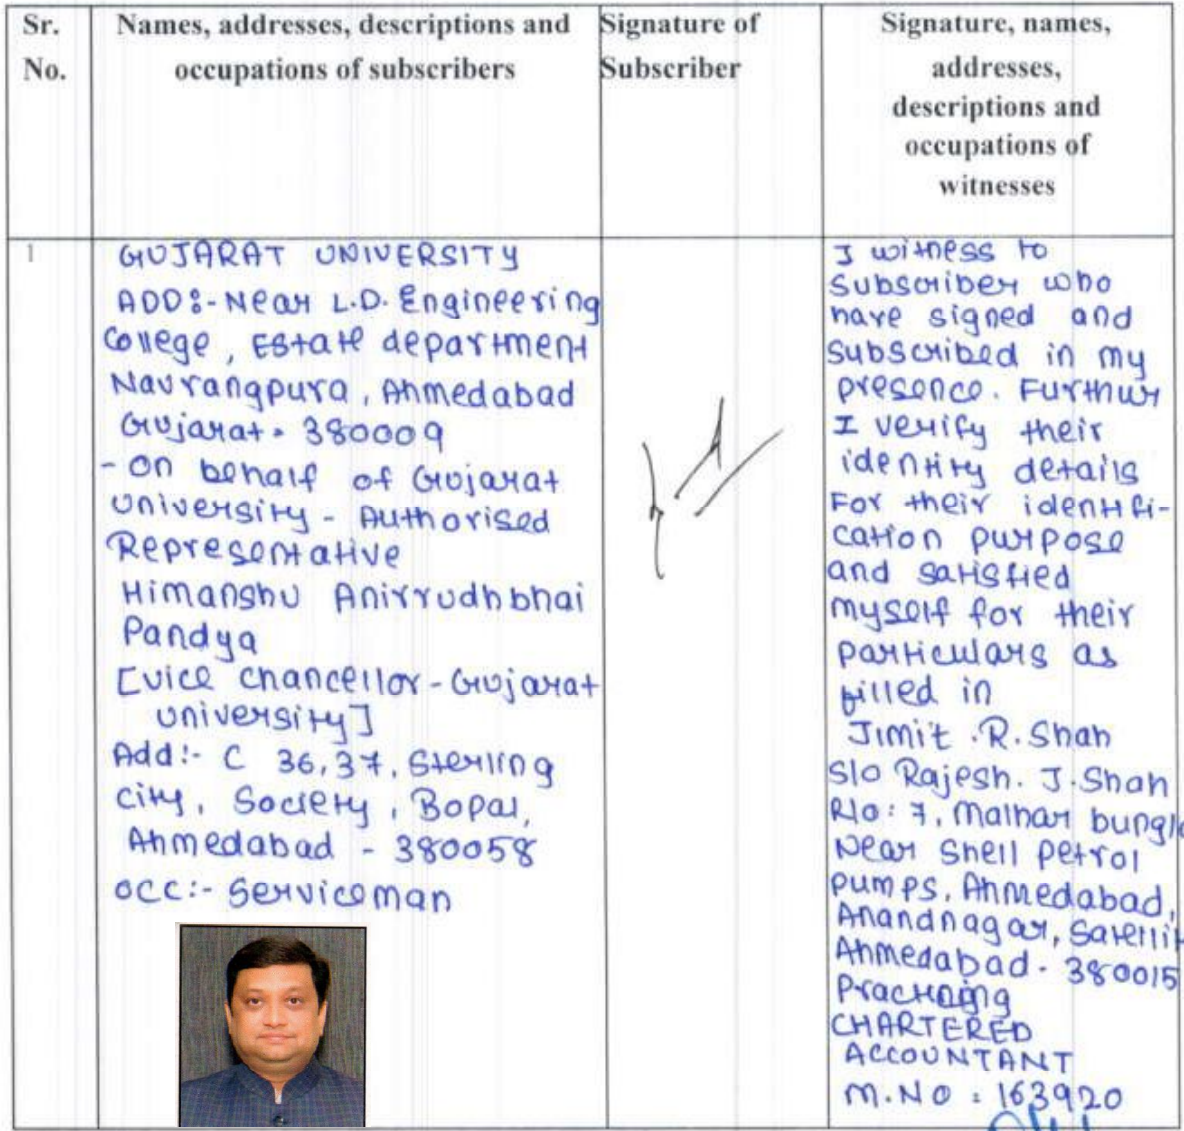 Sr.
No.
Names, addresses, descriptions and
occupations of subscribers
Signature of
Subscriber
Signature, names,
addresses,
descriptions and
occupations of
witnesses
1
GUJARAT UNIVERSITY
ADD:- Near L.D. Engineering
College, Estate department
Navrangpura, Ahmedabad
Gujarat - 380009
- On behalf of Gujarat
University - Authorised
Representative
Himanshu Anirrudhbhai
Pandya
[vice chancellor - Gujarat
university]
Add:- C 36,37, Sterling
city, Society, Bopal,
Ahmedabad - 380058
occ:- Serviceman
I witness to
subscriber who
have signed and
subscribed in my
presence. Furthur
I verify their
identity details
For their identifi-
cation purpose
and satisfied
myself for their
particulars as
filled in
Jimit .R. Shah
S/o Rajesh. J. Shah
R/o: 7, Malhar bunglo
Near Shell petrol
pumps, Ahmedabad,
Anandnagar, Satellit
Ahmedabad - 380015
CHARTERED
ACCOUNTANT
M.NO : 163920